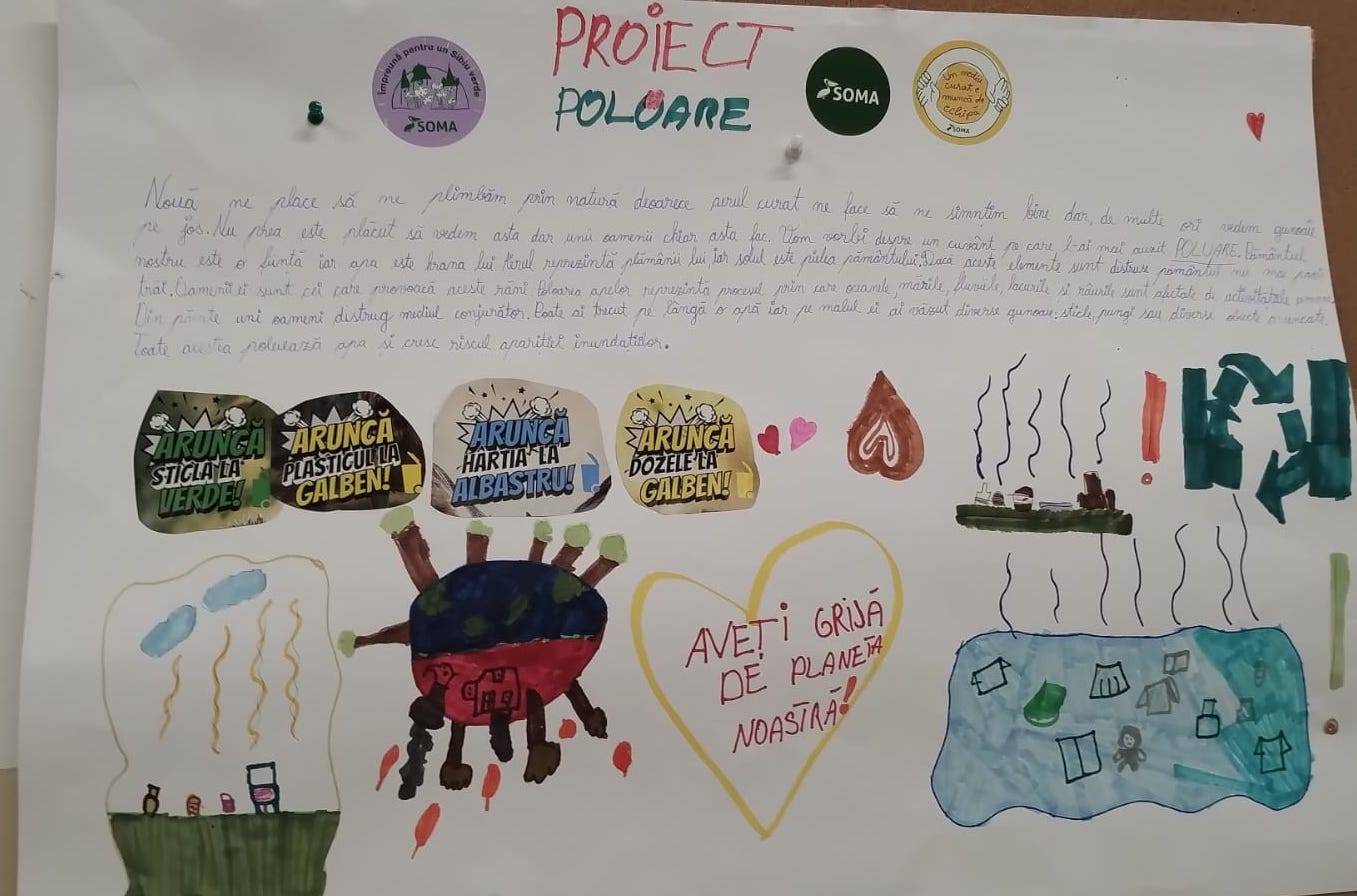 PROIECT
POLUARE
Împreună pentru un Sibiu verde
SOMA
SOMA
Un mediu
curat e
muncă de
echipă
SOMA
Nouă ne place să ne plimbăm prin natură deoarece aerul curat ne face să ne simntim bine dar, de multe ori vedem gunoaie
pe jos. Nu prea este plăcut să vedem asta dar unii oamenii chiar asta fac. Vom vorbi despre un cuvânt pe care l-ai mai auzit POLUARE. Pământul
nostru este o ființă iar apa este hrana lui Aerul reprezintă plămânii lui, iar solul este pielea pământului. Dacă aceste elemente sunt distruse pământul nu mai poate
trăi. Oamenii ei sunt cei care provoacă aceste răni Poluarea apelor reprezintă procesul prin care oceanele, mările, fluviile, lacurile si râurile sunt afectate de activitatăle
Din păcate uni oameni distrug mediul conjurător. Poate ai trecut pe lângă o apă iar pe malul ei ai văzut diverse gunoaie: sticle, pungi sau diverse obiecte aruncate.
Toate acestea poluează apa și cresc riscul apariției inundațiilor.
ARUNCĂ
STICLA LA
VERDE!
ARUNCĂ
PLASTICUL LA
GALBEN!
ARUNCĂ
HÂRTIA LA
ALBASTRU!
ARUNCĂ
DOZELE LA
GALBEN!
AVEȚI GRIJĂ
DE PLANETA
NOASTRĂ!